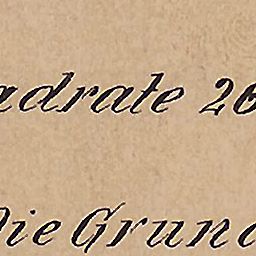 adrate 20
Die Grund